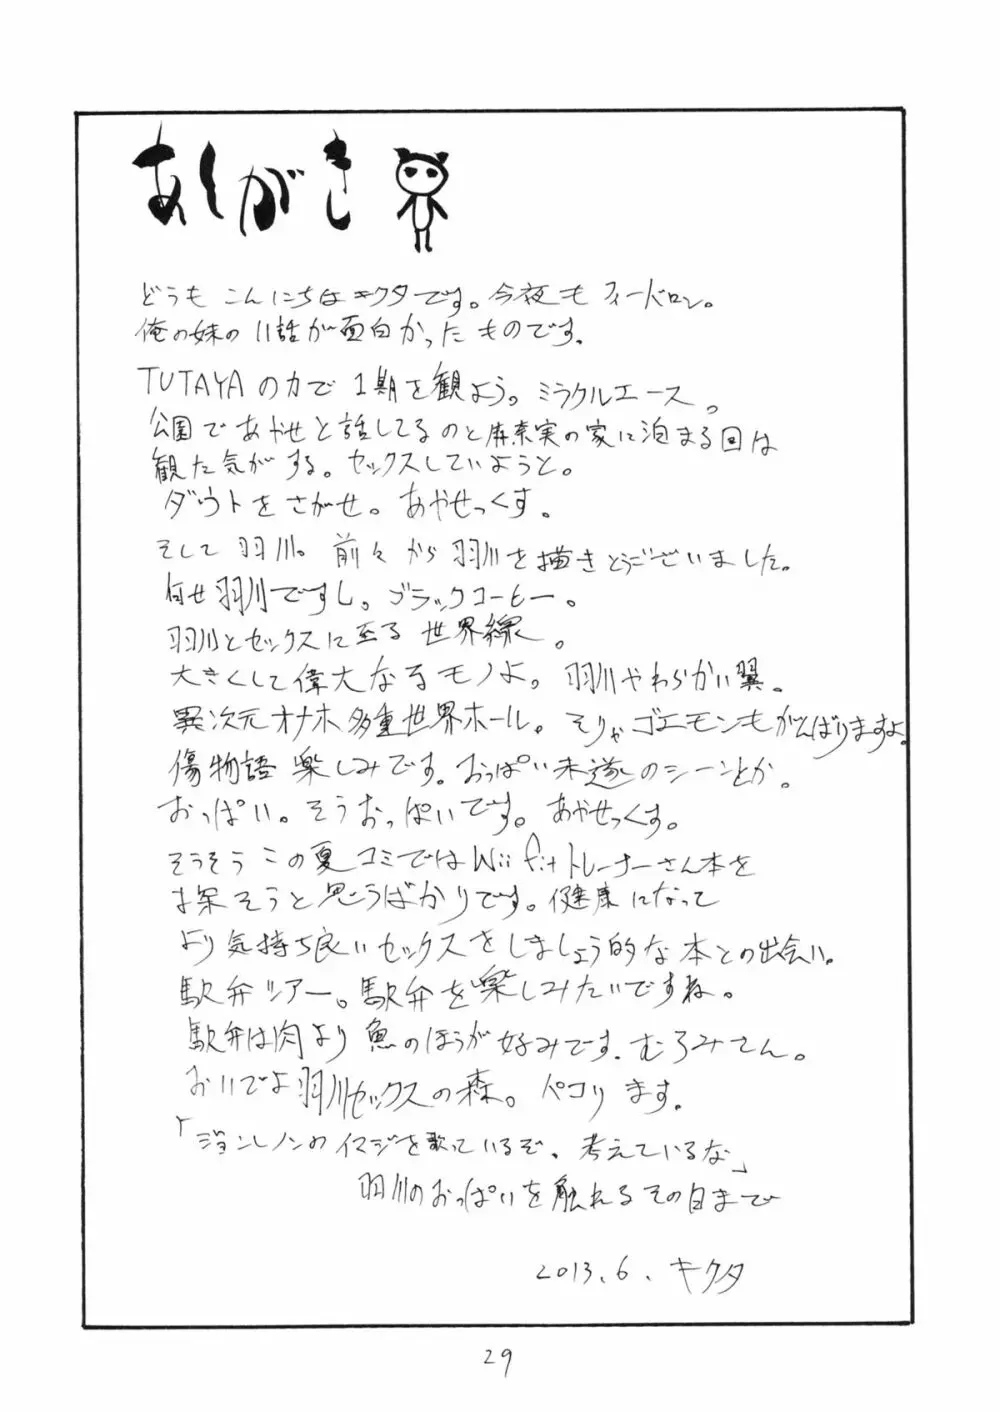 あしがき
どうも こんにちは キクタです。今夜も フィードロン。
俺の妹の 11話が面白かった ものです。
TUTAYAの力で 1期を観よう。ミラクルエース。
公園で あやせと話してるのと麻奈実の家に泊まる回は
観た気がする。セックスしていようと。
ダウトをさがせ。あやせっくす。
そして 羽川。前々から羽川を描きとうございました。
何せ羽川ですし。ブラックコーヒー。
羽川とセックスに至る 世界線。
大きくして偉大なるモノよ。羽川やわらかい翼。
異次元オナホ多重世界ホール。そりゃゴエモンもがんばりますよ。
傷物語 楽しみです。おっぱい未遂のシーンとか。
おっぱい。そうおっぱいです。あやせっくす。
そうそう この夏コミではWii fitトレーナーさん本を
探そうと思うばかりです。健康になって
より気持ち良いセックスをしましょう的な 本との出会い。
駅弁ツアー。駅弁を楽しみたいですね。
駅弁は肉より 魚のほうが好みです。むろみさん。
おいでよ羽川セックスの森。ペコリます。
「ジョンレノンのイマジを歌っているぞ、考えているな」
羽川のおっぱいを触れるその日まで
2013.6. キクタ
29